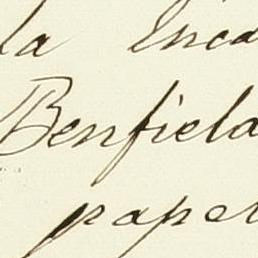 la Enca
Benfield
papel